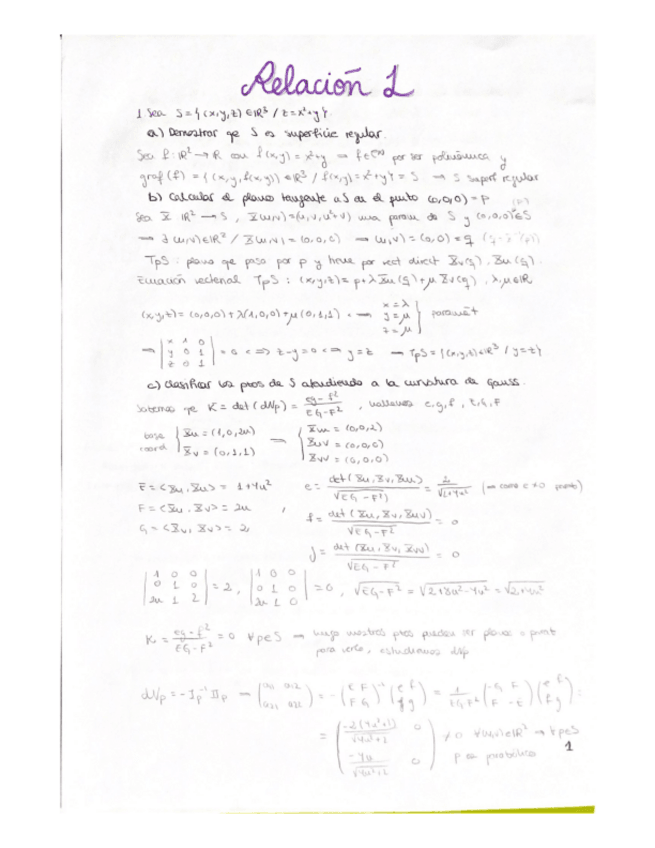 Relación 1
1 Sea S = { (x,y,z) ∈ ℝ³ / z = x²+y }.
a) Demostrar qe S es superficie regular.
Sea f: ℝ² → ℝ con f(x,y) = x²+y ⇒ f ∈ C^∞ por ser polinómica y
graf(f) = { (x,y,f(x,y)) ∈ ℝ³ / f(x,y) = x²+y } = S → S superf regular
b) Calcular el plano tangente a S en el punto (0,0,0) = p
Sea X ℝ² → S, X(u,v) = (u,v,u²+v) una param de S y (0,0,0) ∈ S
→ ∃ (u,v) ∈ ℝ² / X(u,v) = (0,0,0) → (u,v) = (0,0) = q
TpS: plano qe pasa por p y tiene por vect direct Xv(q), Xu(q).
Ecuación vectorial TpS: (x,y,z) = p + λ Xu(q) + μ Xv(q), λ, μ ∈ ℝ
(x,y,z) = (0,0,0) + λ(1,0,0) + μ(0,1,1) ⟺ { x = λ, y = μ, z = μ }
→ | x 1 0 ; y 0 1 ; z 0 1 | = 0 ⟺ z-y = 0 ⟺ y = z → TpS = { (x,y,z) ∈ ℝ³ / y = z }
c) Clasificar los ptos de S atendiendo a la curvatura de Gauss.
Sabemos qe K = det(dNp) = (eg - f²)/(EG - F²), hallamos e, g, f, E, G, F
base coord { Xu = (1,0,2u) ; Xv = (0,1,1) → { Xuu = (0,0,2) ; Xuv = (0,0,0) ; Xvv = (0,0,0)
E = <Xu, Xu> = 1+4u² e = det(Xu, Xv, Xuu)/√(EG - F²) = 2/√(2+4u²)
F = <Xu, Xv> = 2u , f = det(Xu, Xv, Xuv)/√(EG - F²) = 0
G = <Xv, Xv> = 2 g = det(Xu, Xv, Xvv)/√(EG - F²) = 0
| 1 0 0 ; 0 1 0 ; 2u 1 2 | = 2, | 1 0 0 ; 0 1 0 ; 2u 1 0 | = 0, √(EG - F²) = √(2+8u²-4u²) = √(2+4u²)
K = (eg - f²)/(EG - F²) = 0 ∀p ∈ S → luego nuestros ptos pueden ser planos o parab
para verlo, estudiamos dNp
dNp = -Ip⁻¹ IIp → (a11 a12 ; a21 a22) = -(E F ; F G)⁻¹ (e f ; f g) = 1/(EG-F²) (-G F ; F -E) (e f ; f g) :
≠ 0 ∀(u,v) ∈ ℝ² → ∀p ∈ S
p es parabólico
1